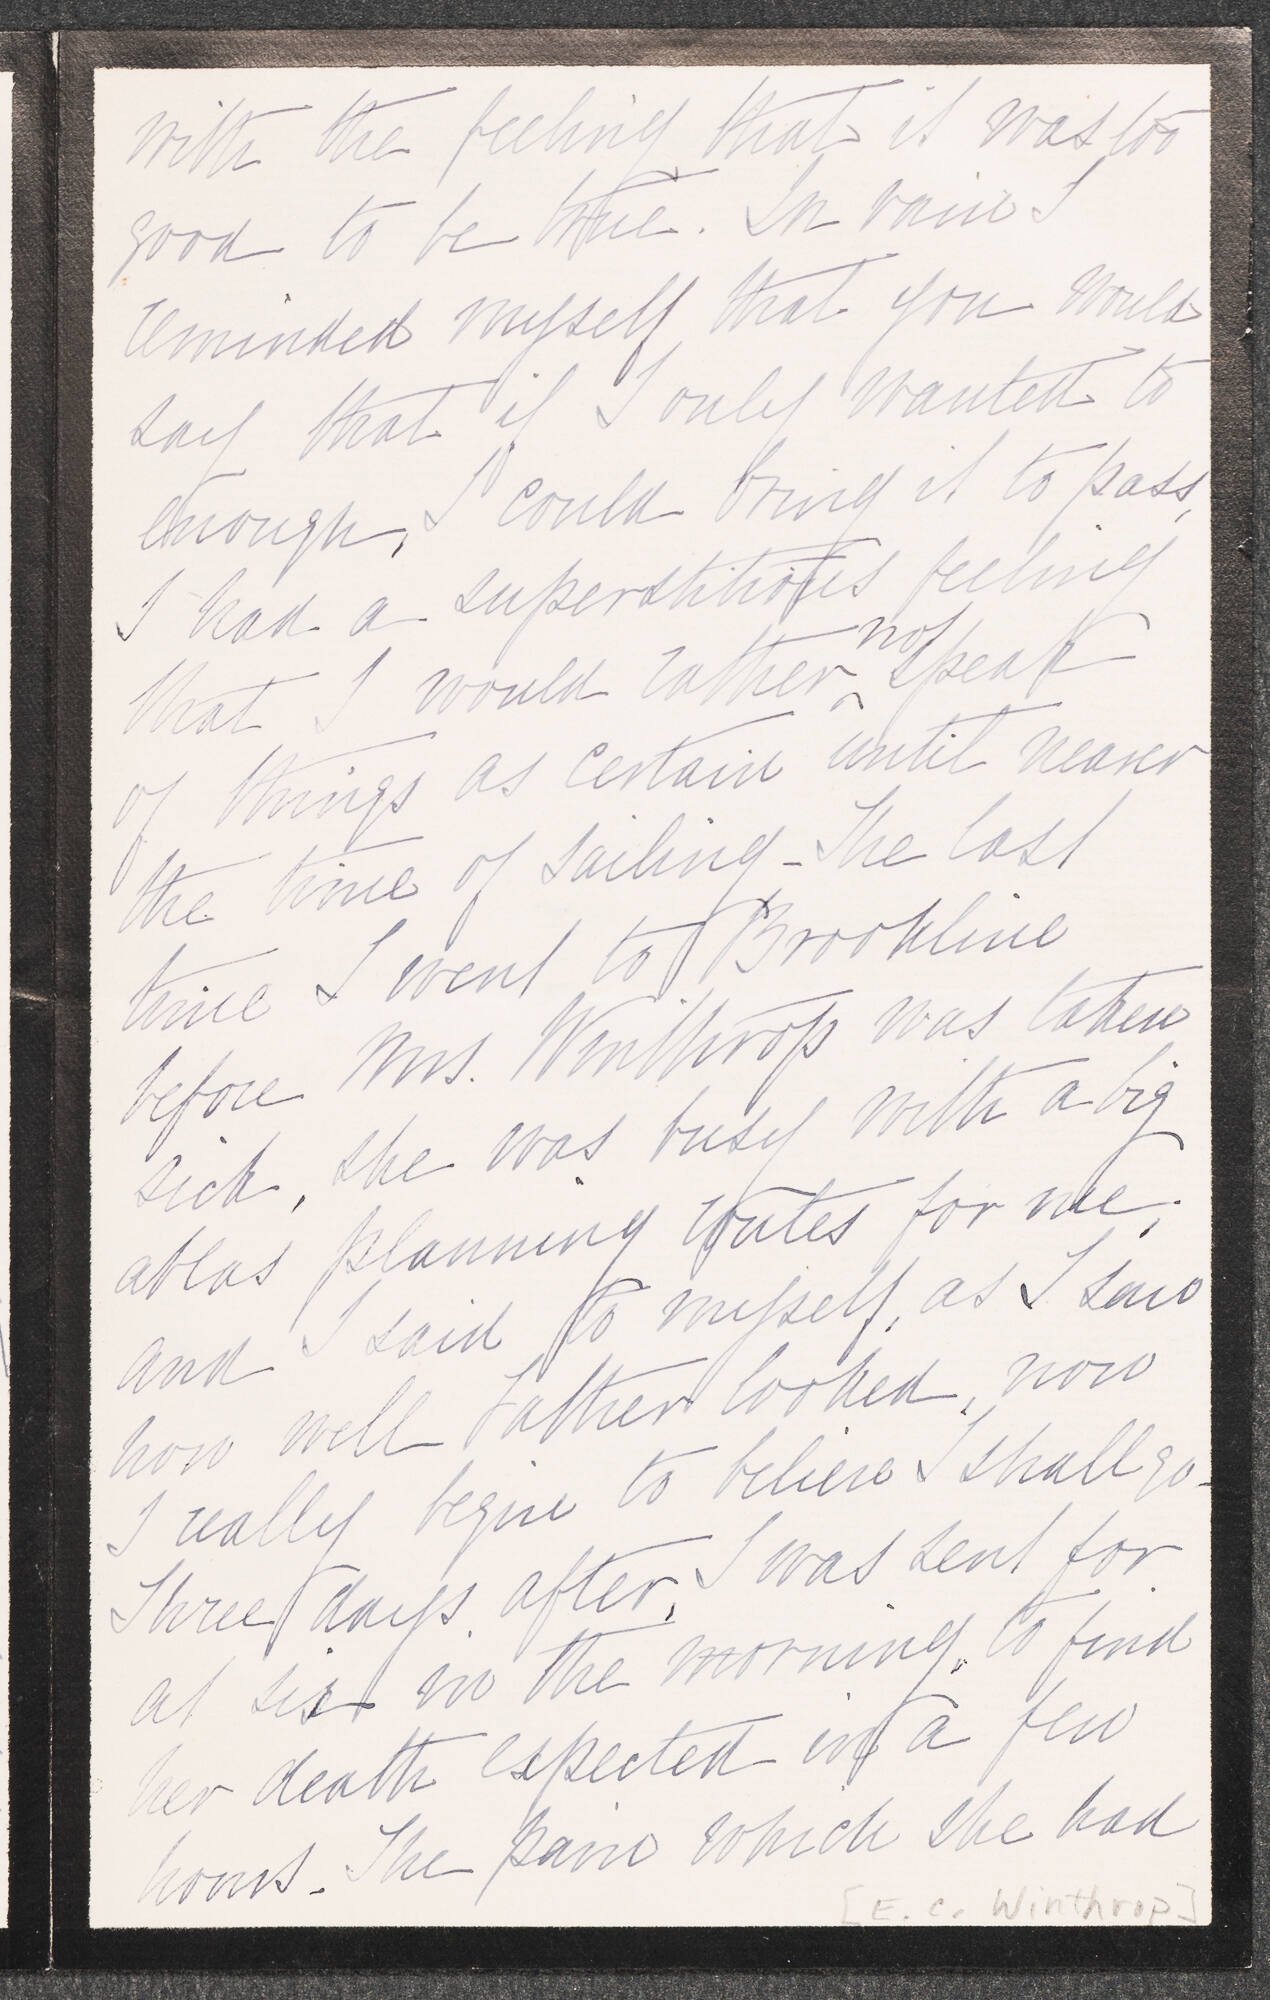 with the feeling that it was too
good to be true. In vain I
reminded myself that you would
say that if I only wanted to
enough, I could bring it to pass,
I had a superstitious feeling
that I would rather ^not speak
of things as certain until nearer
the time of sailing - The last
time I went to Brookline
before Mrs. Winthrop was taken
sick, she was busy with a big
atlas planning routes for me;
and I said to myself, as I saw
how well Father looked, now
I really begin to believe I shall go -
Three days after, I was sent for
at six in the morning, to find
her death expected in a few
hours. The pain which she had
[E. C. Winthrop]